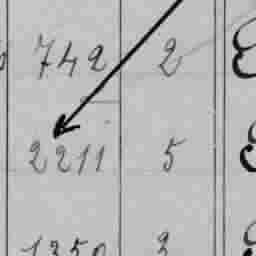 742 2
2211 5
1350 3